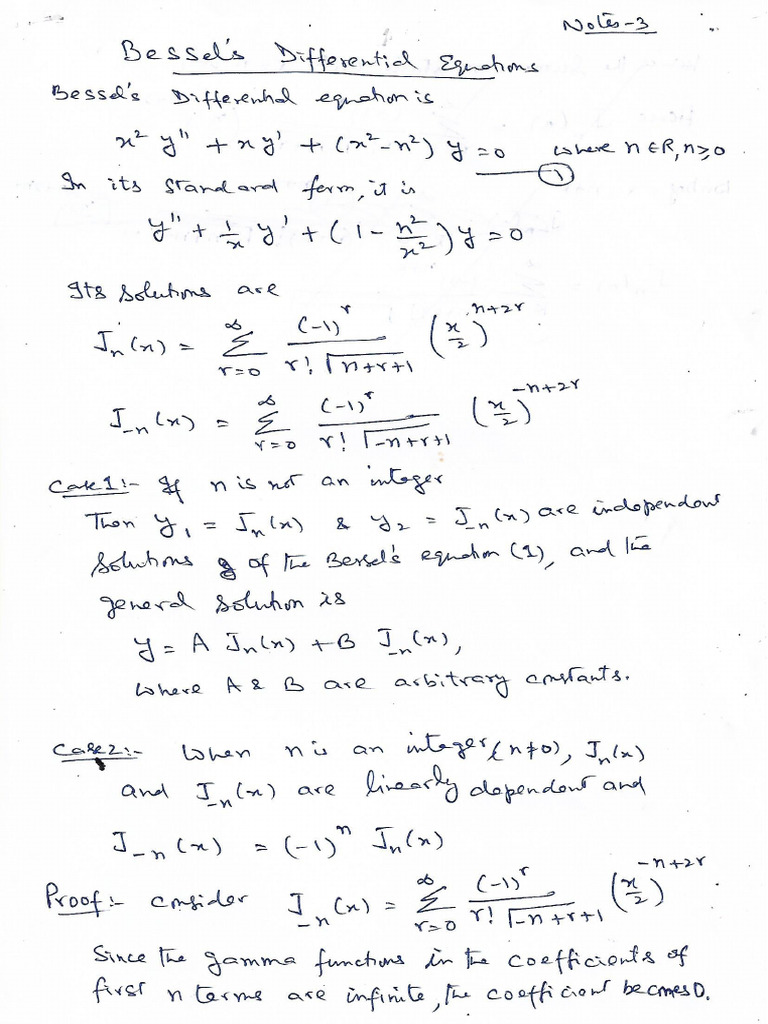 Notes-3
Bessel's Differential Equations
Bessel's Differential equation is
x² y'' + x y' + (x² - n²) y = 0 where n ∈ R, n ≥ 0
①
In its standard form, it is
y'' + 1/x y' + (1 - n²/x²) y = 0
Its solutions are
J_n(x) = ∑_{r=0}^{∞} (-1)^r / (r! Γ(n+r+1)) (x/2)^{n+2r}
J_{-n}(x) = ∑_{r=0}^{∞} (-1)^r / (r! Γ(-n+r+1)) (x/2)^{-n+2r}
Case 1:- If n is not an integer
Then y₁ = J_n(x) & y₂ = J_{-n}(x) are independent
solutions of the Bessel's equation (1), and the
general solution is
y = A J_n(x) + B J_{-n}(x),
where A & B are arbitrary constants.
Case 2:- When n is an integer (n≠0), J_n(x)
and J_{-n}(x) are linearly dependent and
J_{-n}(x) = (-1)^n J_n(x)
Proof:- consider J_{-n}(x) = ∑_{r=0}^{∞} (-1)^r / (r! Γ(-n+r+1)) (x/2)^{-n+2r}
Since the gamma functions in the coefficients of
first n terms are infinite, the coefficient becomes 0.